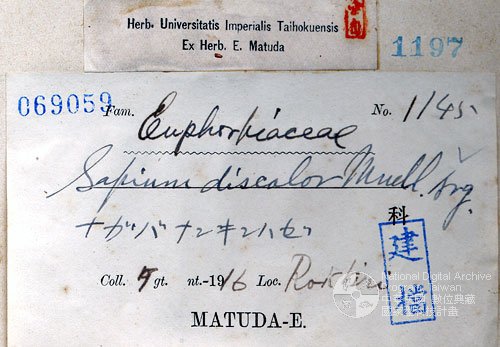 Herb. Universitatis Imperialis Taihokuensis
Ex Herb. E. Matuda
1197
069059
Fam. Euphorbiaceae No. 1145
Sapium discolor Muell. Arg.
ナガバナンキンハゼ
科
建檔
Coll. gt. nt.-1916 Loc.
MATUDA-E.
National Digital Archive
Program, Taiwan
數位典藏
國家型科技計畫